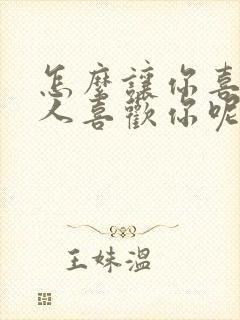 怎麼讓你喜
人喜歡你呢
王妹溫